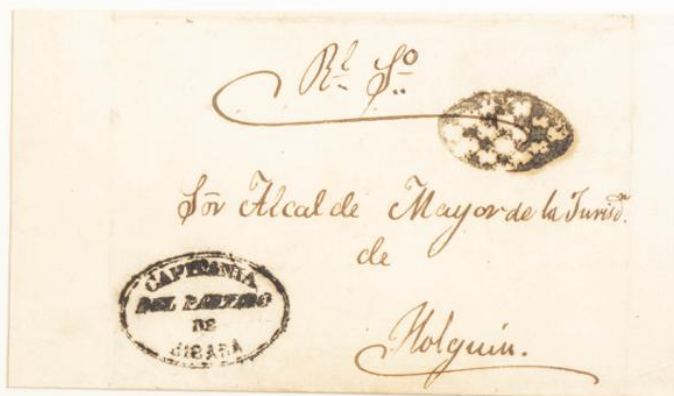 Rl. So.
Sõr Alcalde Mayor de la Jurisdon.
de
Holguin.
CAPITANIA
DEL PARTIDO
DE
GIBARA